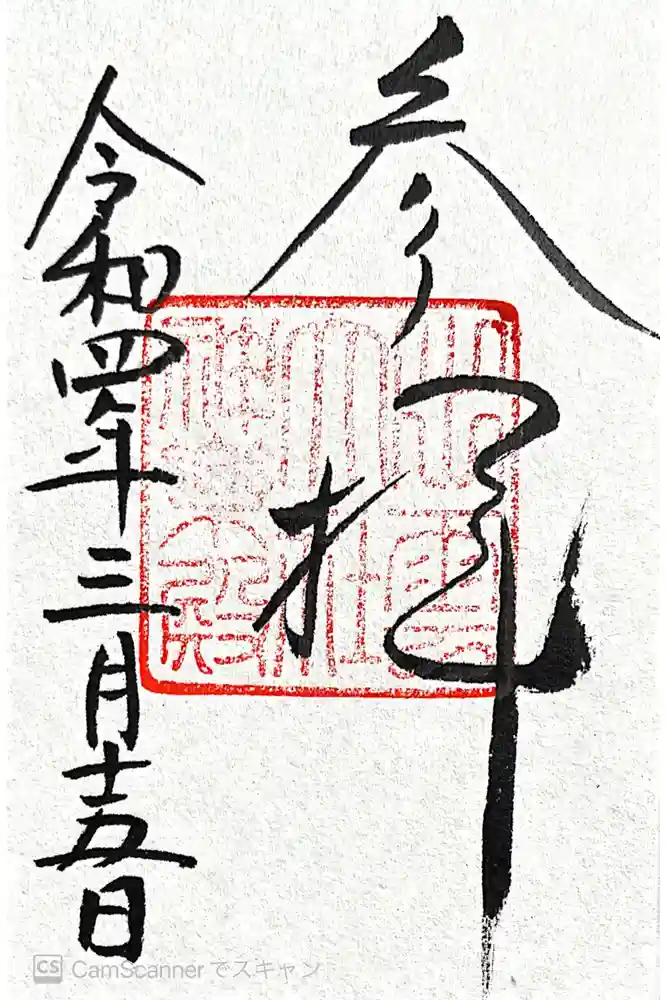 参拝
出雲
大社
神楽殿
令和四年三月十五日
CS CamScanner でスキャン